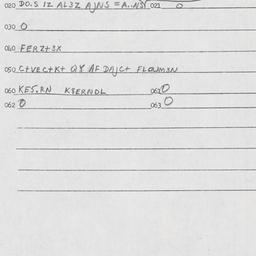 020 DO.S IZ AL3Z AJNS = A..N3Y 021 O
030 O
040 FERZ+3X
050 C+VEC+K+ QY AF DAJC+ FLOUM3N
060 KES.RN K3ERNDL 061 O
062 O 063 O